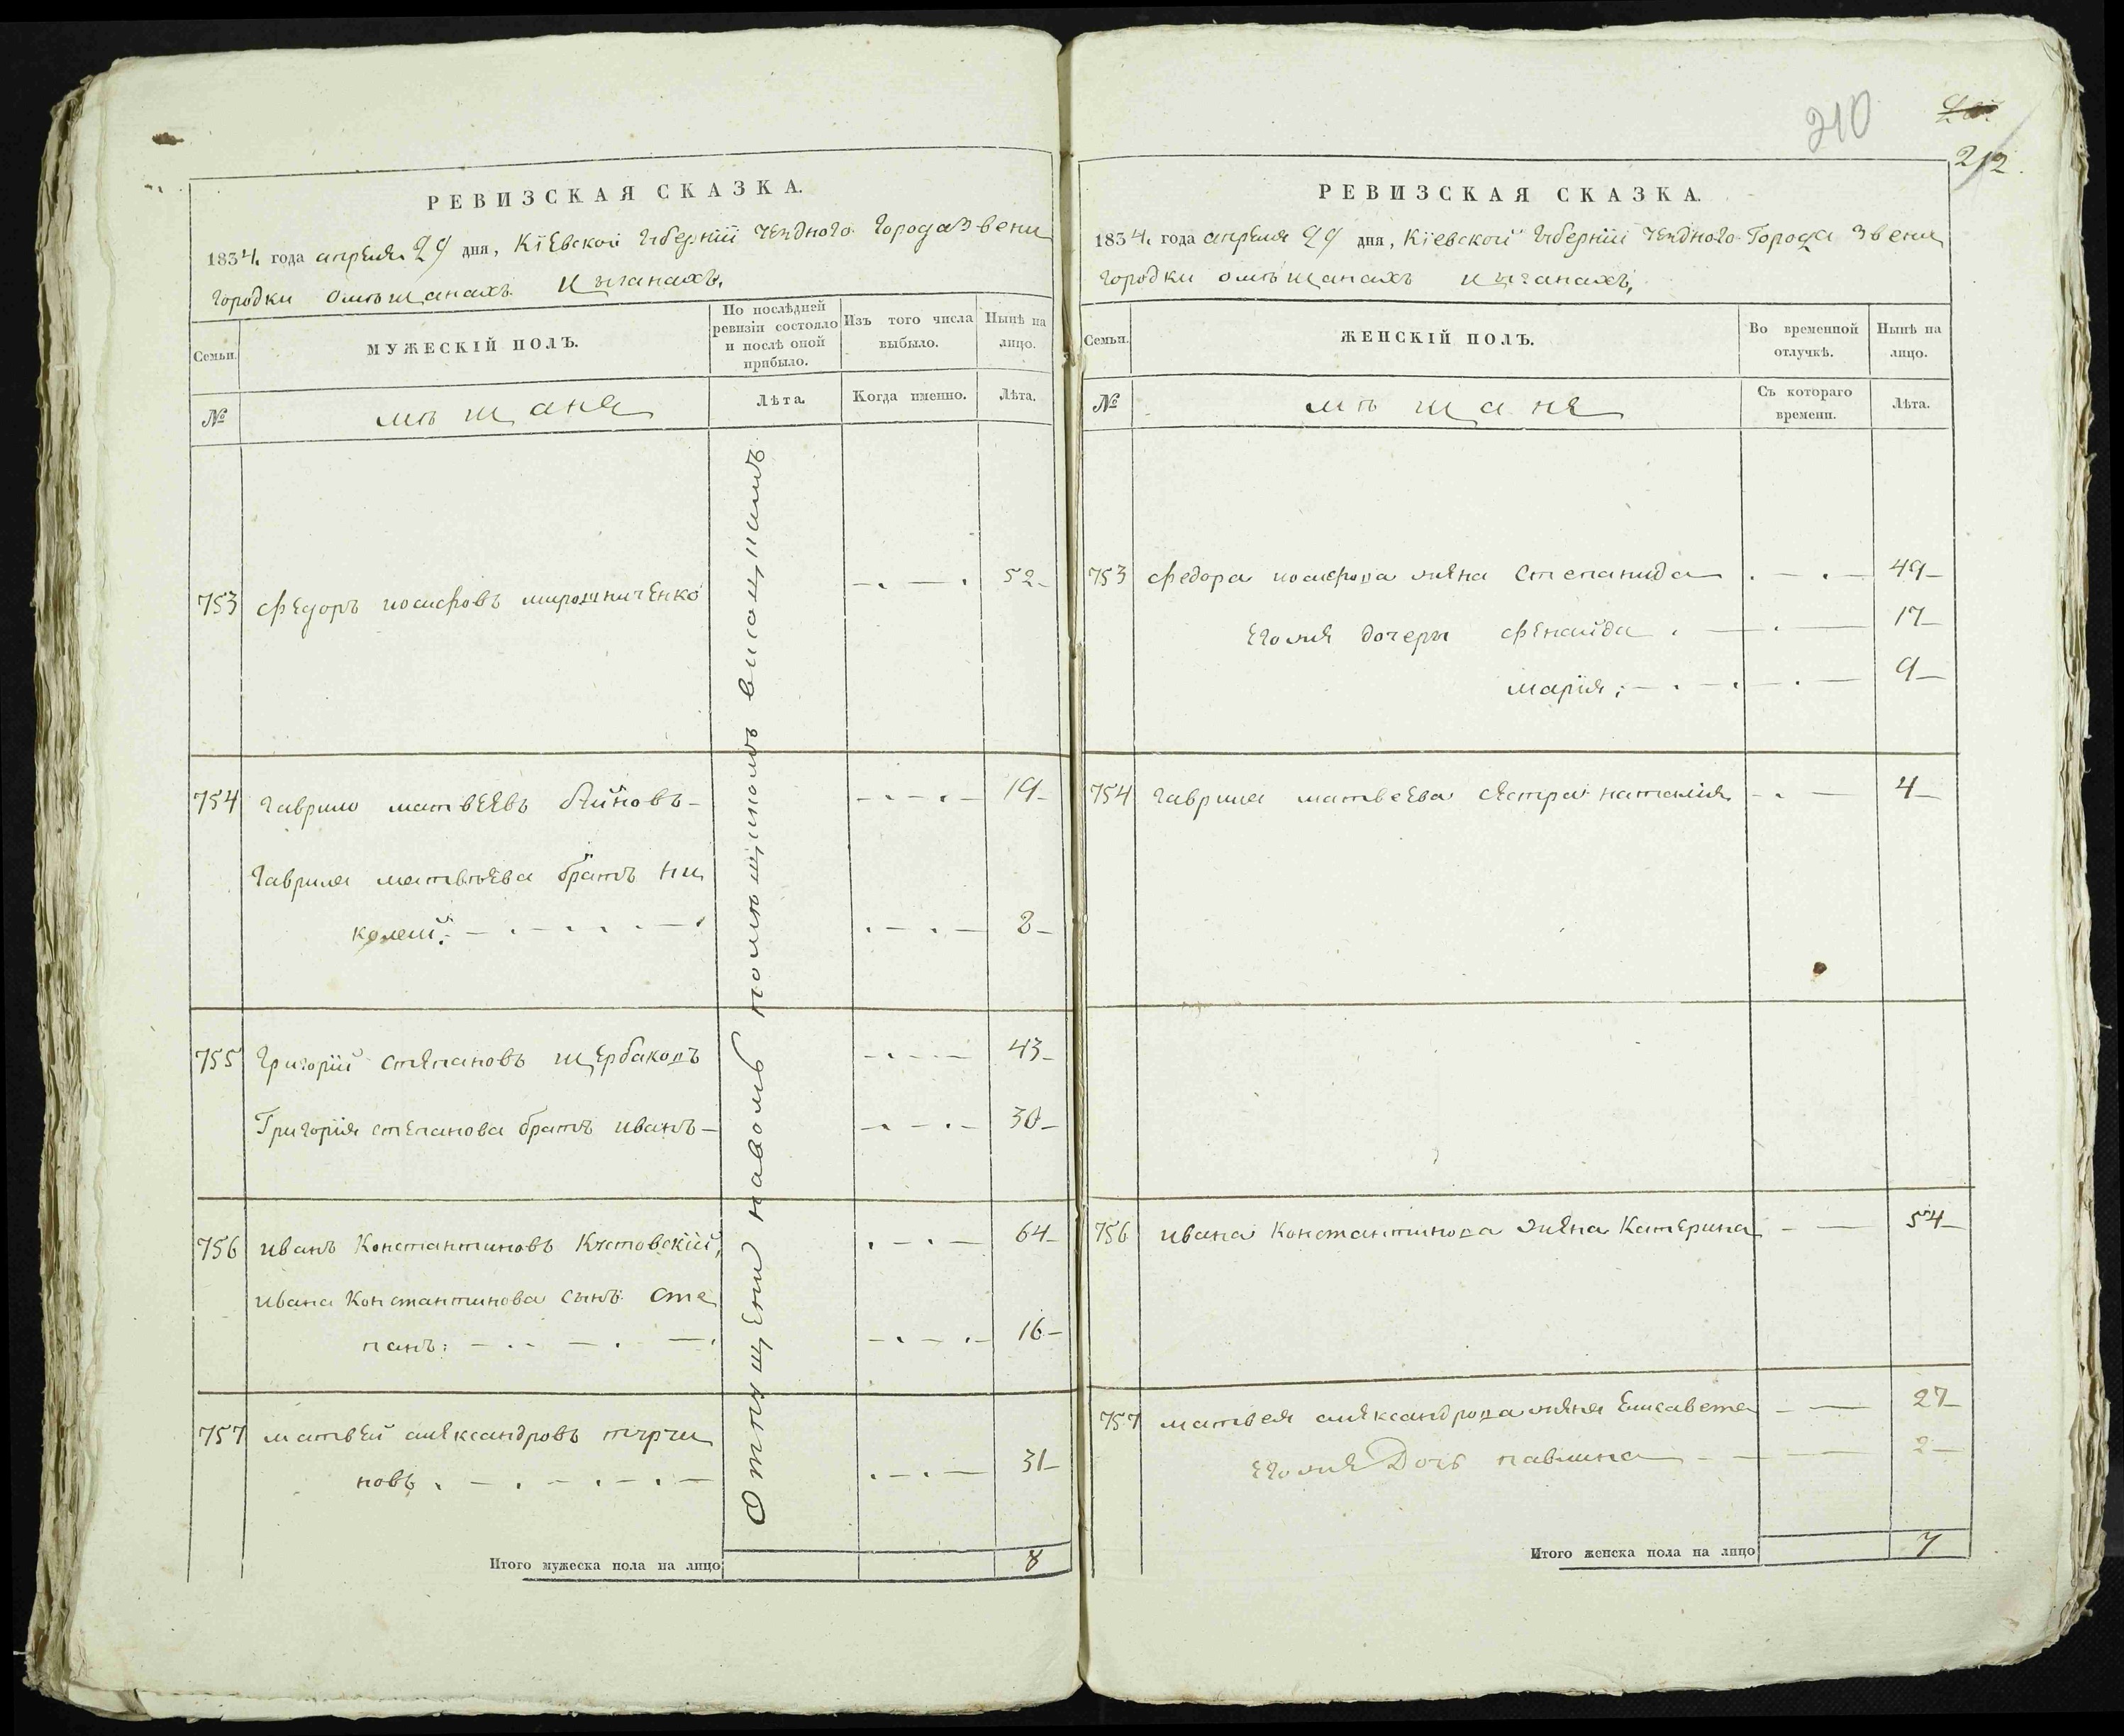 РЕВИЗСКАЯ СКАЗКА.
1834. года апреля 29 дня, Кїевской губернїи уездного города Звени
городки омѣщанахъ и цыганахъ,
Семьи.
МУЖЕСКІЙ ПОЛЪ.
По послѣдней ревизіи состояло и послѣ оной прибыло.
Изъ того числа выбыло.
Нынѣ на лицо.
№
мѣщане
Лѣта.
Когда именно.
Лѣта.
753 федоръ иосифовъ мирошниченко 52
754 гаврило матвеевъ 19
гаврила матвѣева братъ ни
колай: 2
755 григорїй степановъ щербаковъ 43
Григорїя степанова братъ иванъ 30
756 иванъ Константиновъ Кустовскїй, 64
ивана Константинова сынъ сте
панъ: 16
757 матвей александровъ турчи
новъ 31
помещиномъ
Итого мужеска пола на лицо 8
210
212.
РЕВИЗСКАЯ СКАЗКА.
1834. года апреля 29 дня, Кїевской губернїи уездного Города Звени
городки омѣщанахъ и цыганахъ,
Семьи.
ЖЕНСКІЙ ПОЛЪ.
Во временной отлучкѣ.
Нынѣ на лицо.
№
мѣщане
Съ котораго времени.
Лѣта.
753 федора иосифова жена степанида 49
егоже дочери фенаида 17
марїя: 9
754 гаврила матвеева сестра наталия 4
756 ивана Константинова жена Катерина 54
757 матвея александрова жена Елисавета 27
егоже Дочь павлина 2
Итого женска пола на лицо 7